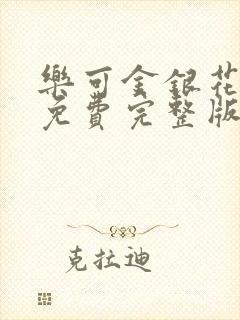 樂可金銀花
免費完整版
克拉迪